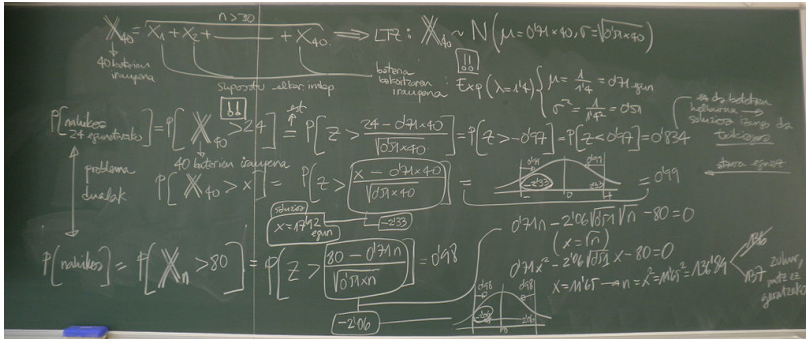 n>30
X₄₀ = X₁ + X₂ + ——— + X₄₀ ⟹ LTZ: X₄₀ ~ N(μ=0'71×40, σ=√0'51×40)
40 baterien iraupena
suposatu elkar. indep
bateria bakoitzaren iraupena: Exp(λ=1'4) { μ = 1/1'4 = 0'71 egun
σ² = 1/1'4² = 0'51
!!
!!
P[nahikoa 24 egunetarako] = P[X₄₀ > 24] = P[Z > (24 − 0'71×40)/√0'51×40] = P[Z > -0'97] = P[Z < 0'97] = 0'834
40 baterien iraupena
problema dualak
P[X₄₀ > x] = P[Z > (x − 0'71×40)/√0'51×40] = 0'99
-2'33
0
soluzioa x = 17'92 egun
-2'33
P[nahikoa] = P[Xₙ > 80] = P[Z > (80 − 0'71n)/√0'51×n] = 0'98
-2'06
0'98
0'98
0'71n − 2'06√0'51√n − 80 = 0
(x = √n)
0'71x² − 2'06√0'51 x − 80 = 0
x = 11'65 → n = x² = 11'65² = 136'89
136
137